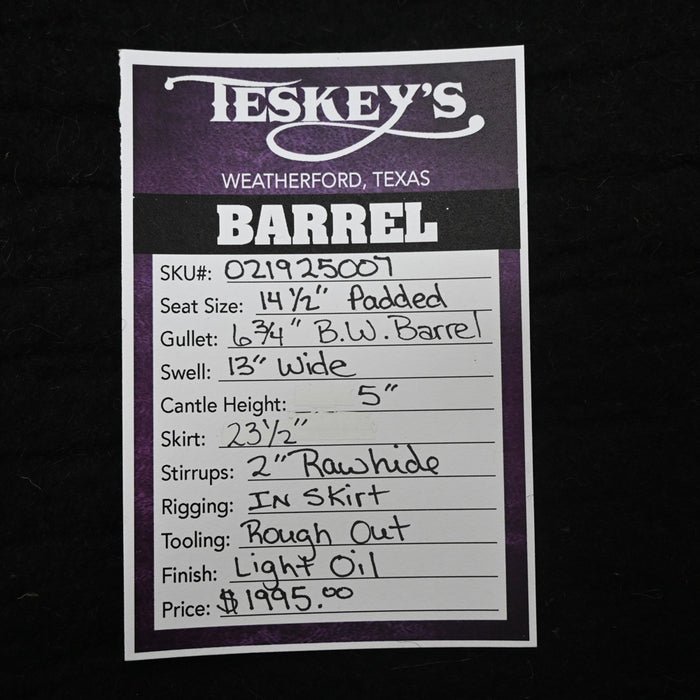 TESKEY'S
WEATHERFORD, TEXAS
BARREL
SKU#: 021925007
Seat Size: 14 1/2" Padded
Gullet: 6 3/4" B.W. Barrel
Swell: 13" Wide
Cantle Height: 5"
Skirt: 23 1/2"
Stirrups: 2" Rawhide
Rigging: IN Skirt
Tooling: Rough Out
Finish: Light Oil
Price: $1995.00